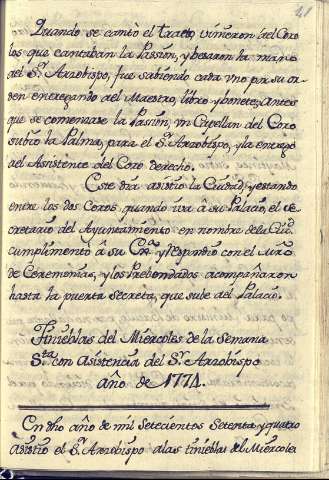 41
Quando se cantò el tracto, vinieron del Coro
los que cantaban la Passion, y besaron la mano
del Sr. Arzobispo, fue subiendo cada uno por su or-
den entregando al Maestro, libro y bonete; antes
que se comenzase la Pasion, un Capellan del Coro
subio la Palma, para el Sr. Arzobispo, y la entregò
al Asistente del Coro derecho.
Este dia asistio la Ciudad, y estando
entre los dos Coros, quando iva â su Palacio, el se-
cretario del Ayuntamiento en nombre de la Ciud.
cumplimentò â su Exa. y respondio con el Mro.
de Ceremonias, y los Prebendados acompañaron
hasta la puerta Secreta, que sube al Palacio.
Tinieblas del Miercoles de la Semana
Sta. con Asistencia del Sr. Arzobispo
año de 1774.
En dho año de mil Setecientos Setenta y quatro
asistio el Sr. Arzobispo a las tinieblas del Miercoles